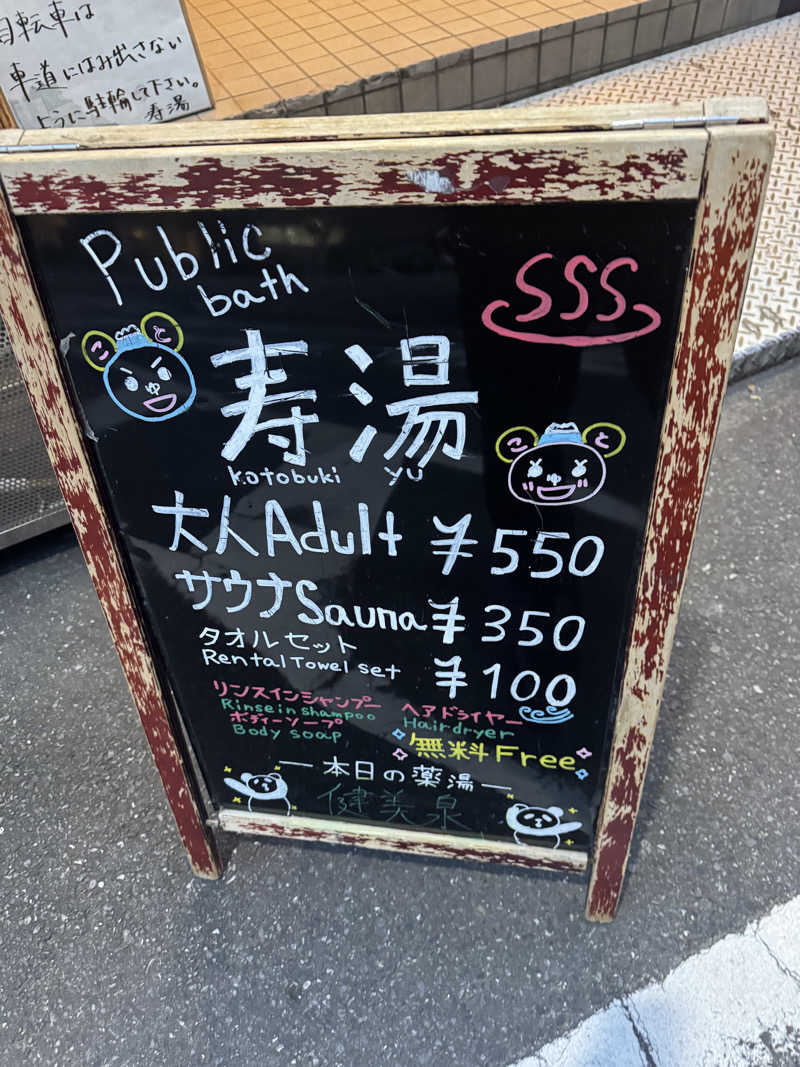 自転車は
車道にはみ出さない
ように駐輪して下さい。
寿湯
Public
bath
こ と
ゆ
寿湯
kotobuki yu
こ と
ゆ
大人 Adult ¥550
サウナ Sauna ¥350
タオルセット
Rental Towel set ¥100
リンスインシャンプー
Rinse in shampoo
ボディーソープ
Body soap
ヘアドライヤー
Hairdryer
無料 Free
ー本日の薬湯ー
健美泉